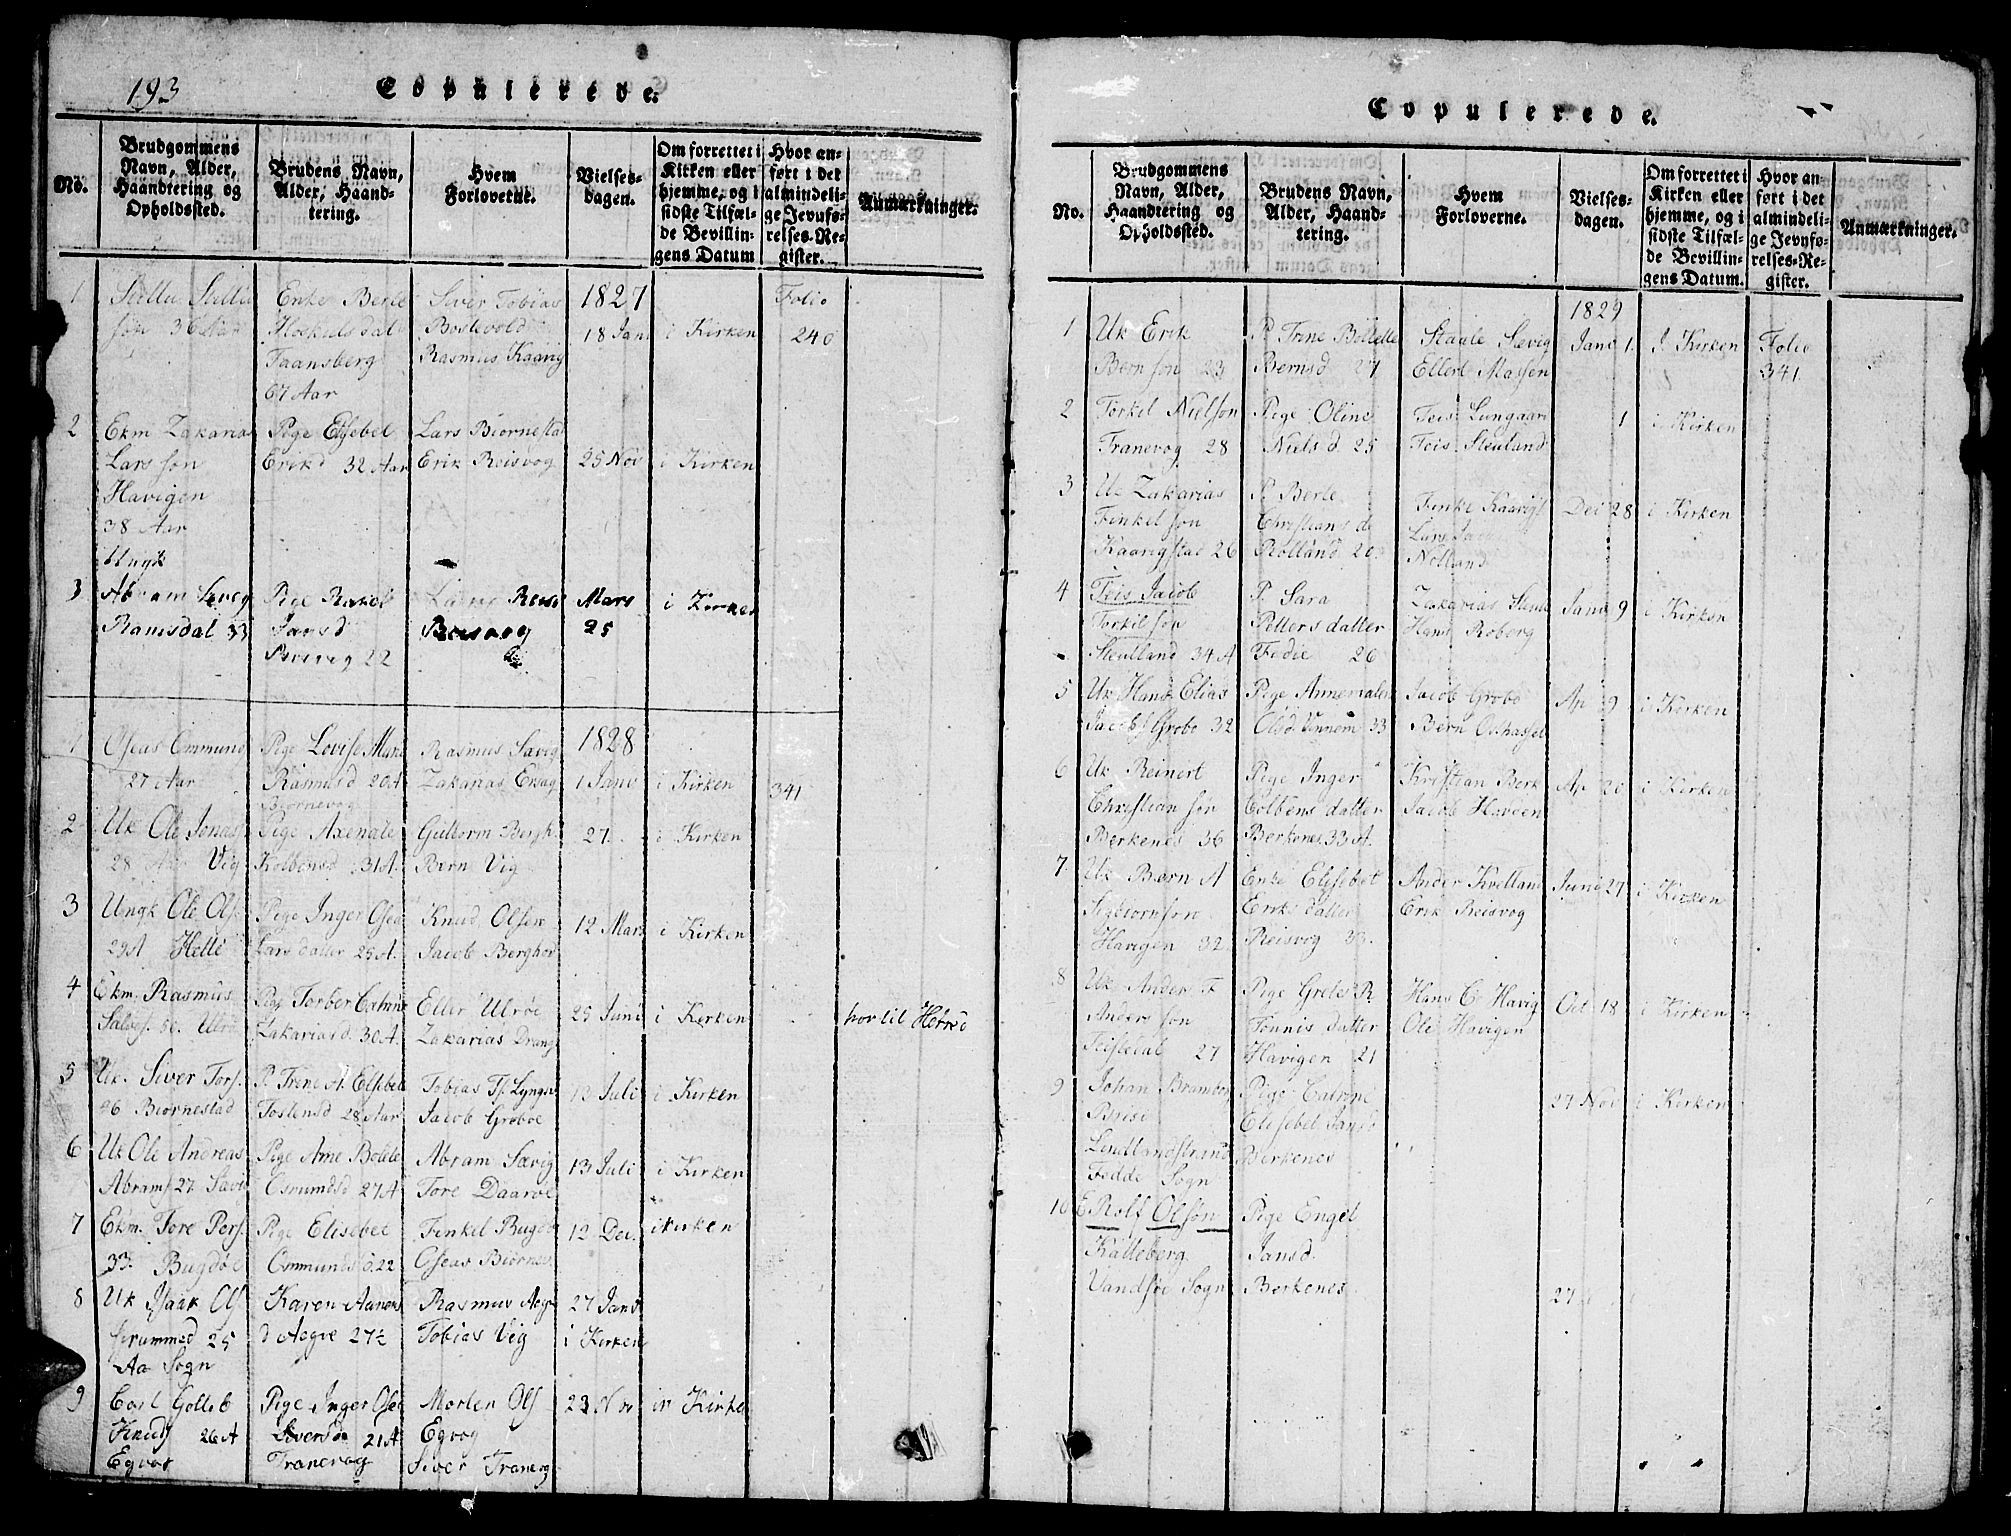 193
Copulerede.
No.
Brudgommens Navn, Alder, Haandtering og Opholdssted.
Brudens Navn, Alder, Haandtering.
Hvem Forloverne.
Vielsesdagen.
Om forrettet i Kirken eller hjemme, og i sidste Tilfælde Bevillingens Datum
Hvor anført i det almindelige Jevnførelses-Register.
Anmærkninger.
1
son 36
Enke Berte
Faansberg
67 Aar
Siver Tobias
Rasmus Kaarig
1827
18 Jan
i Kirken
Folio
240
2
Ekm Zakarias
Lars son
Havigen
38 Aar
Ungk
Pige Elsebet
Erikd 32 Aar
Lars Biornestad
Erik Reisvog
25 Nov
i Kirken
3
Ramsdal 33
Pige Rakel
Jansd
22
Reisvog
Mars
25
i Kirken
1
Oseas Ommund
27 Aar
Pige Lovise
Rasmusd 20 A
Biornevog
Rasmus Sævig
Zakarias
1828
1 Janv
i Kirken
341
2
Uk Ole Jonas
28 Vig
Pige Axenale
Kolbensd 31 A.
Guttorm Bergh.
Bern Vig
27.
i Kirken
3
Ungk Ole Ols
29 A Helle
Pige Inger Osea
Lars datter 25 A.
Knud Olsen
Jacob Berghov
12 Mars
i Kirken
4
Ekm. Rasmus
Pige Torber
Zakariasd. 30 A.
Eller Ulrøe
Zakarias Drang
25 Juni
i Kirken
hor til Hetrø
5
Uk. Siver Tors.
26 Biornestad
P. Trene A. Elsebet
Tostensd 28 Aar
Tobias
Jacob Groboe
13 Juli
i Kirken
6
Uk Ole Andreas
Abrams 27
Pige Ane Bolete
27 A
Abram Sævig
Tore Daaroe
13 Juli
i Kirken
7
Ekm. Tore Pers.
33. Bugdøe
Pige Elisebet
Ommundsd 22
Finkel Bugdø
Oseas Biornes
12 Dec.
i kirken
8
Uk Isaak Ols
25
Aa Sogn
Karen Aanens
d Aegre 27½
Rasmus Aegr
Tobias Vig
27 Janv
i Kirken
9
Carl Gotleb
Knuds 26 A
Egvog
Pige Inger Ose
Siversd 21 A
Tranevog
Morten Ols
Egvog
Siver Tranevog
23 Nov
i Kirke
Copulerede.
No.
Brudgommens Navn, Alder, Haandtering og Opholdssted.
Brudens Navn, Alder, Haandtering.
Hvem Forloverne.
Vielsesdagen.
Om forrettet i Kirken eller hjemme, og i sidste Tilfælde Bevillingens Datum.
Hvor anført i det almindelige Jevnførelses-Register.
Anmærkninger.
1
Uk Erik
Bern son 23
P. Trine Bolette
Bernsd 27
Staale Sævig
Ellert Massen
1829
Janv 1.
I Kirken
Folio
341.
2
Torkel Nielson
Tranevog 28
Pige Oline
Niels d 25
Teis Lungaar
Teis Steuland
1
i Kirken
3
Uk Zakarias
Finkel son
Kaarigstal 26
P. Berte
Christians d
Rolland 20
Finke
Lars
Netland
Dec 28
i Kirken
4
Teis Jacob
Torkilson
Steulland 34 A
P. Sara
Petters datter
Fedie 26
Zakarias
Hans Roberg
Janv 9
i Kirken
5
Uk Hans Elias
Jacobs Grobo 32
Pige Annematen
Olsd Unnem 33
Jacob Grobo
Bern Oshassel
Ap 9
i Kirken
6
Uk Reinert
Christian son
Berkenes 36
Pige Inger
Colbens datter
Berkenes 33 A.
Kristian Berk
Jacob Haveen
Ap 20
i Kirken
7
Uk Bærn A
Sigbiornson
Havigen 32
Enke Elisebet
Eriks datter
Reisvog 33.
Ander Kvelland
Erik Reisvog
Juni 27
i Kirken
8
Uk Anders F
Anders son
27
Pige Grete R
Tonnis datter
Havigen 21
Hans C Havig
Ole Havigen
Oct 18
i Kirken
9
Johan Brambor
Brise
Lendlandstrand
Fedde Sogn
Pige Catrine
Elisebet Jansd
Berkenes
27 Nov
i Kirken
10
E Rolf Olson
Kalleberg
Vandsøe Sogn
Pige Engel
Jansd
Berkenes
27